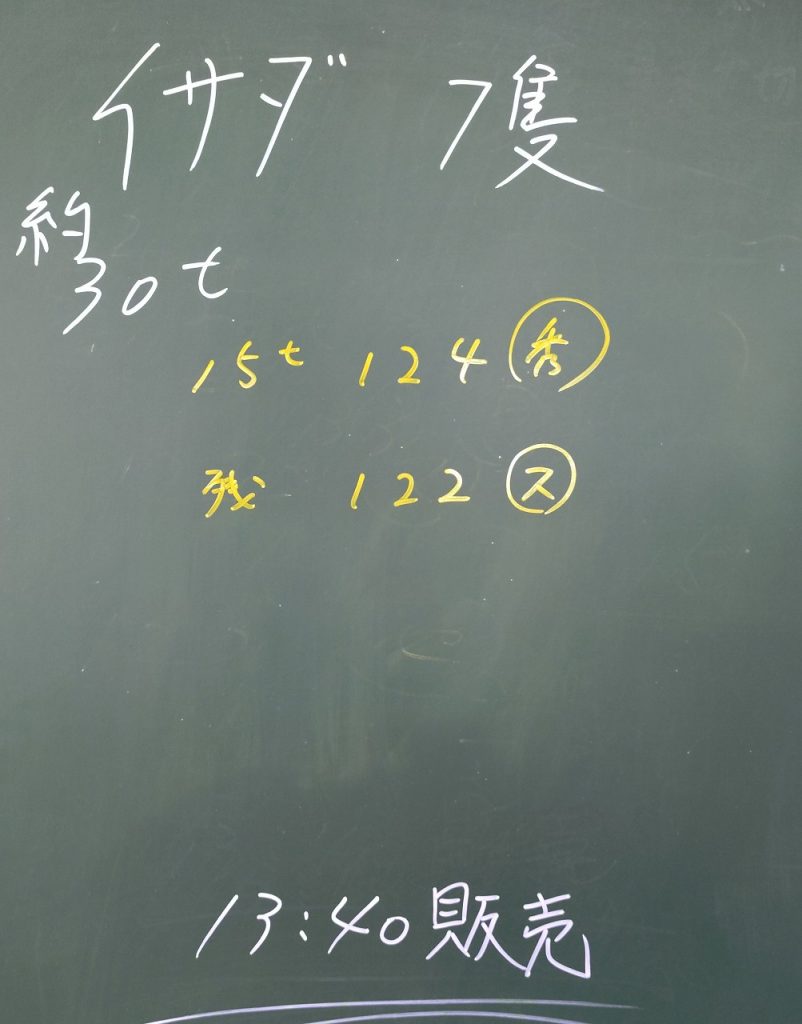 イサダ 7隻
約30t
15t 124 秀
残 122 ス
13:40販売